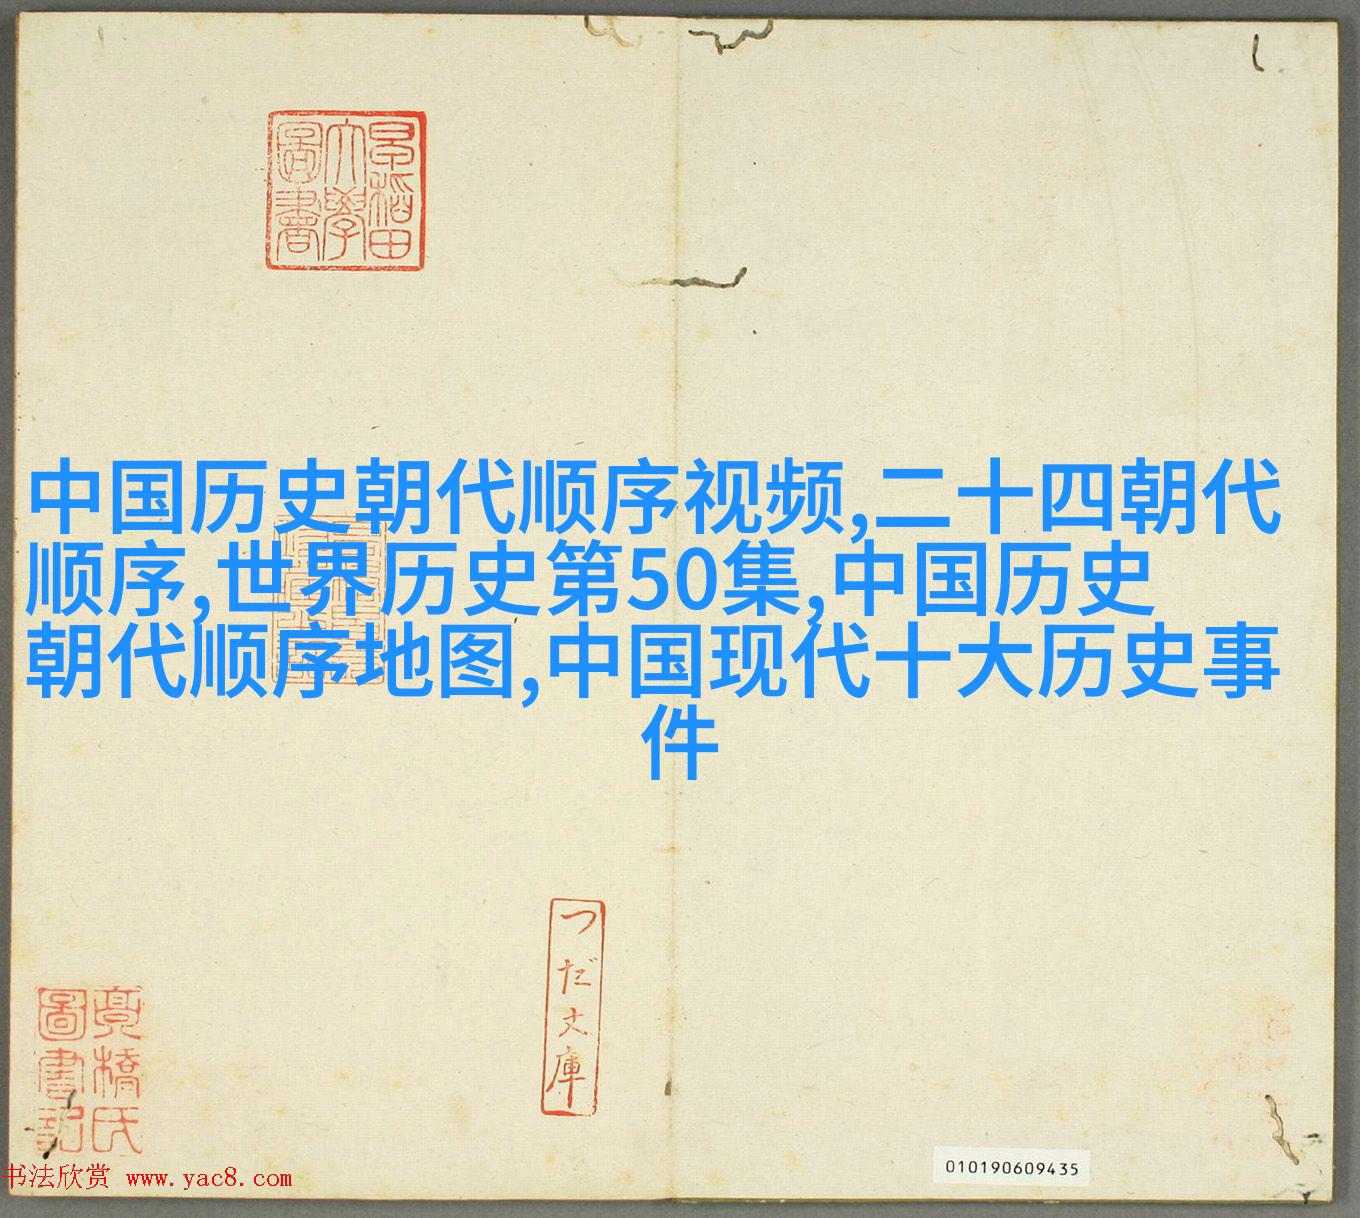 早稻田
大學
圖書
中国历史朝代顺序视频,二十四朝代
顺序,世界历史第50集,中国历史
朝代顺序地图,中国现代十大历史事
件
つだ文庫
橋氏
圖書記
书法欣赏 www.yac8.com
010190609435